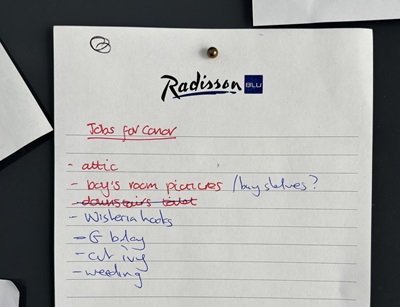 2
Radisson BLU
Jobs for Conor
- attic
- boy's room pictures / buy shelves?
- downstairs toilet
- Wisteria hooks
- G b
- cut ivy
- weeding